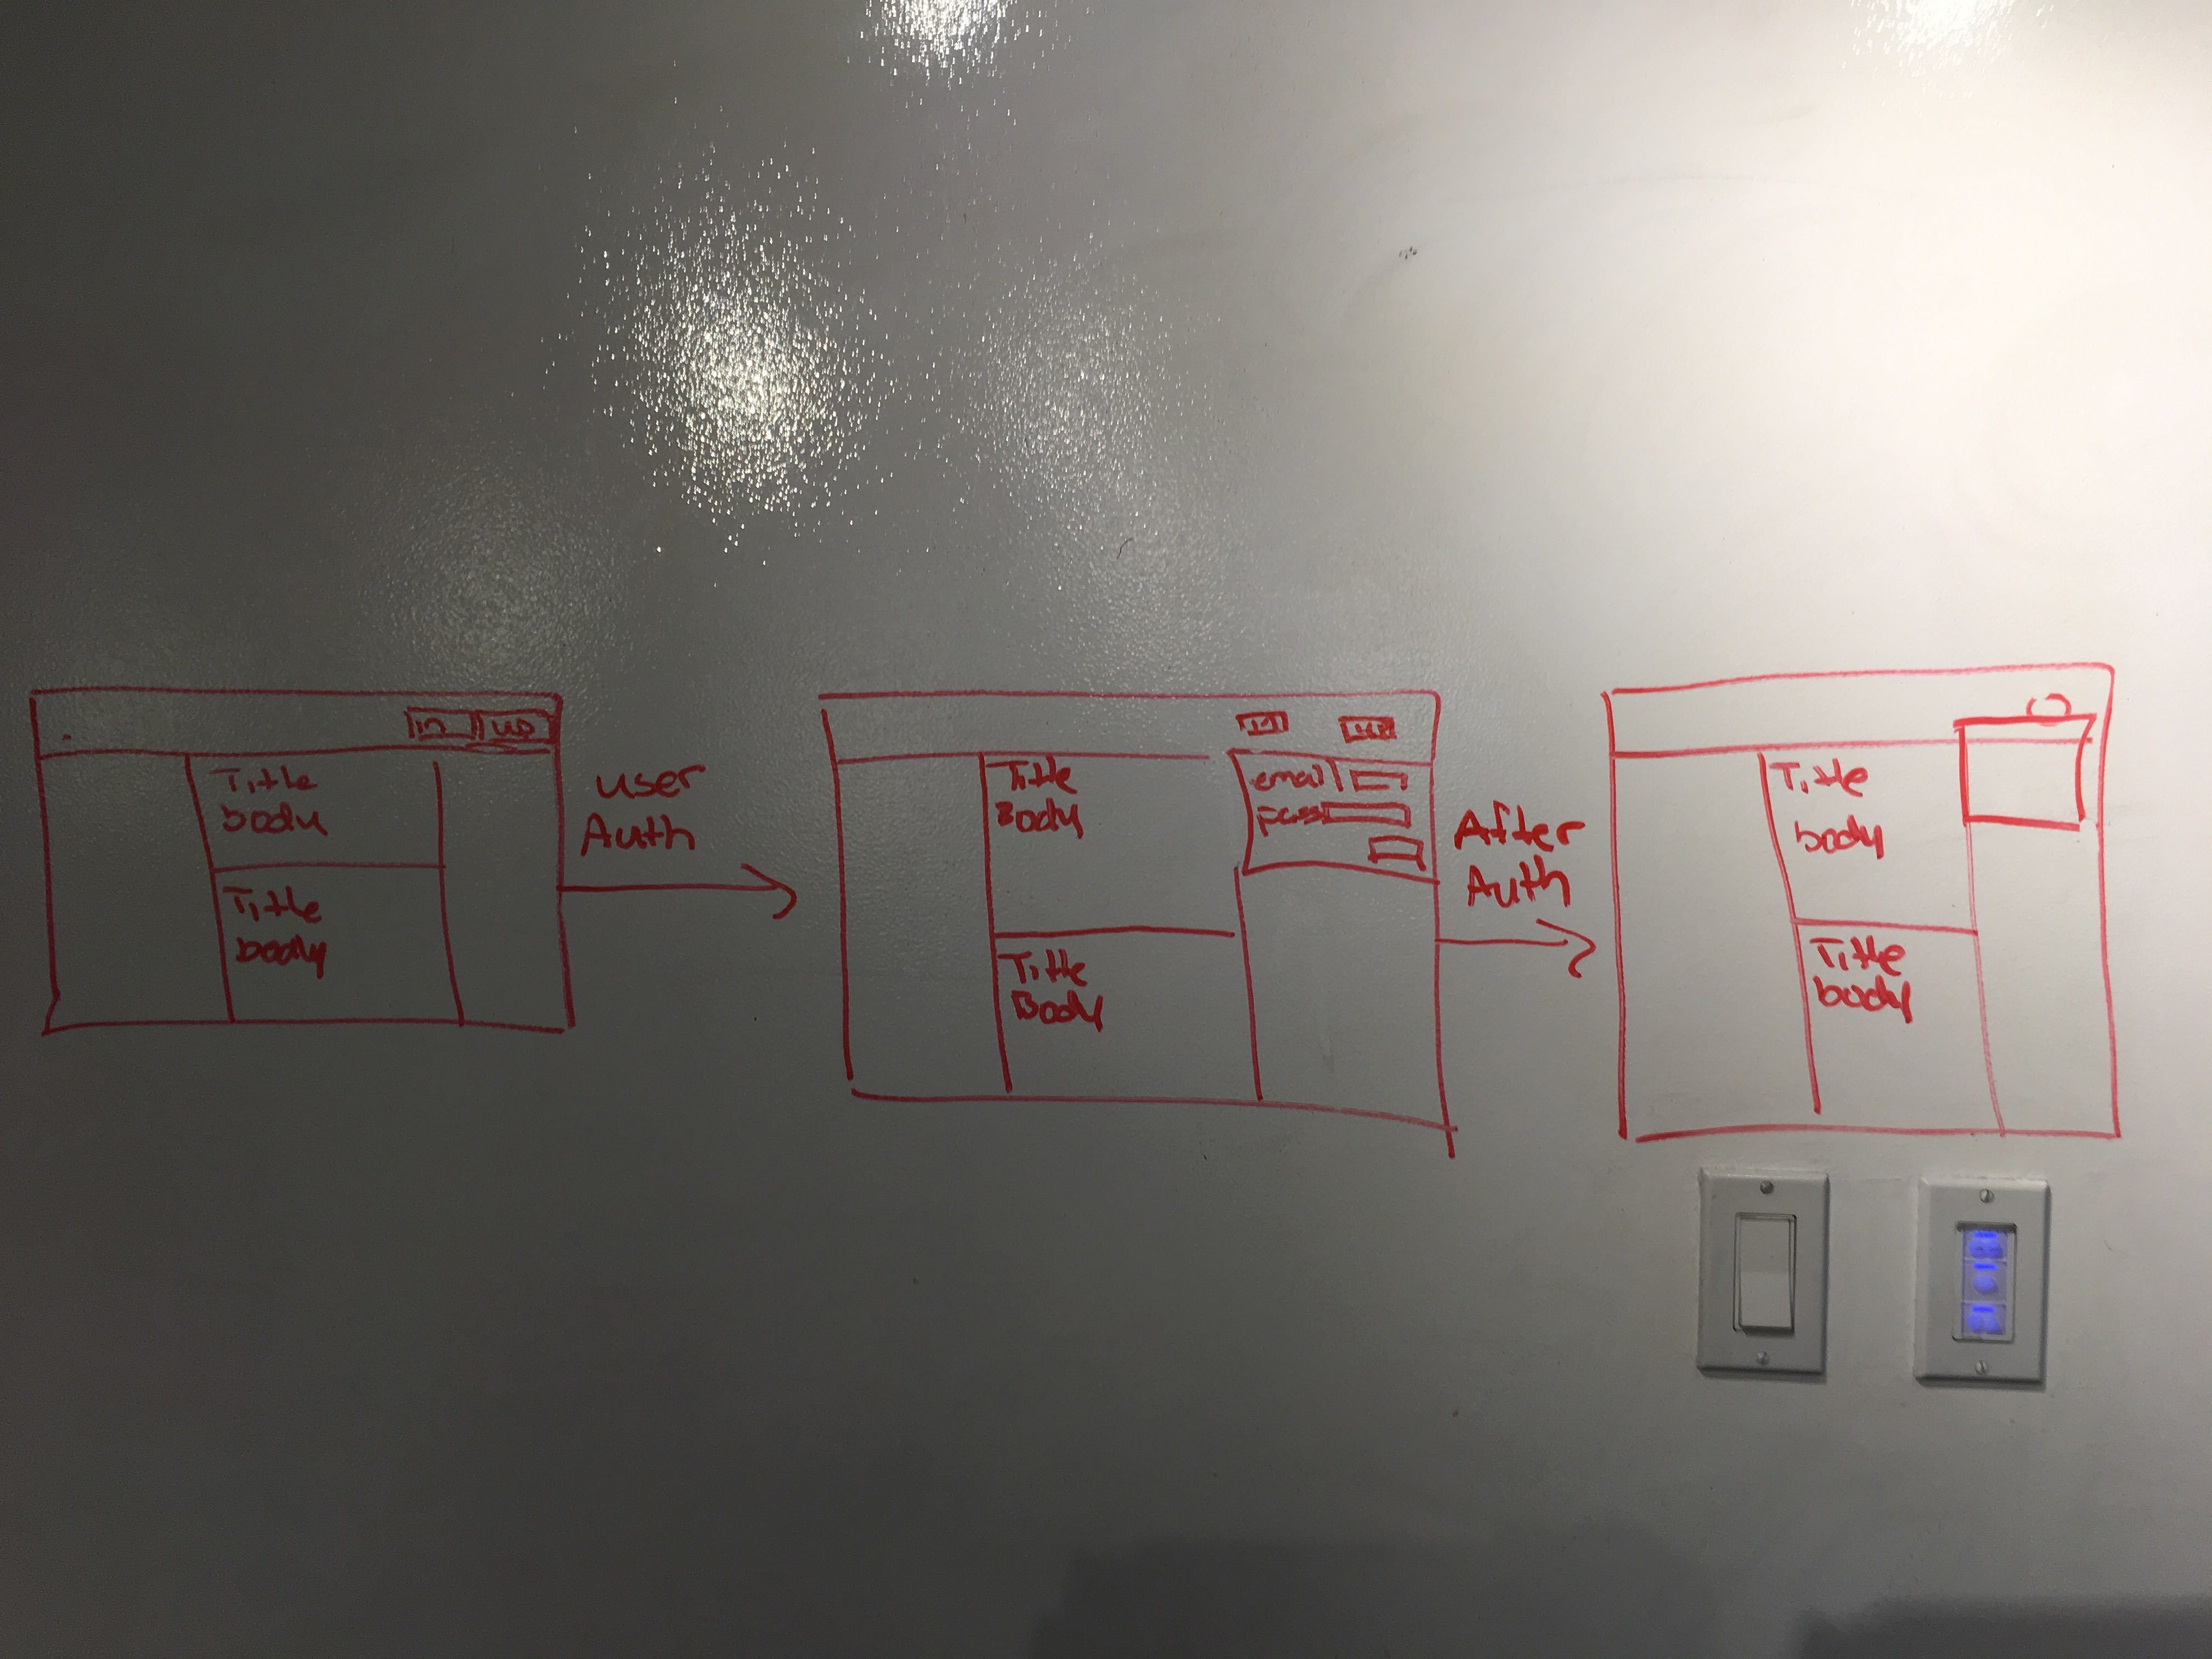 in up
Title
body
Title
body
user
Auth
in up
Title
Body
email
pass
Title
Body
After
Auth
Title
body
Title
body